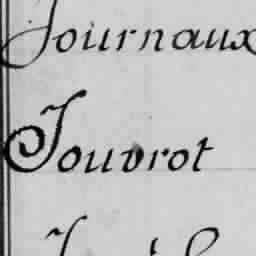 Journaux
Jouvrot